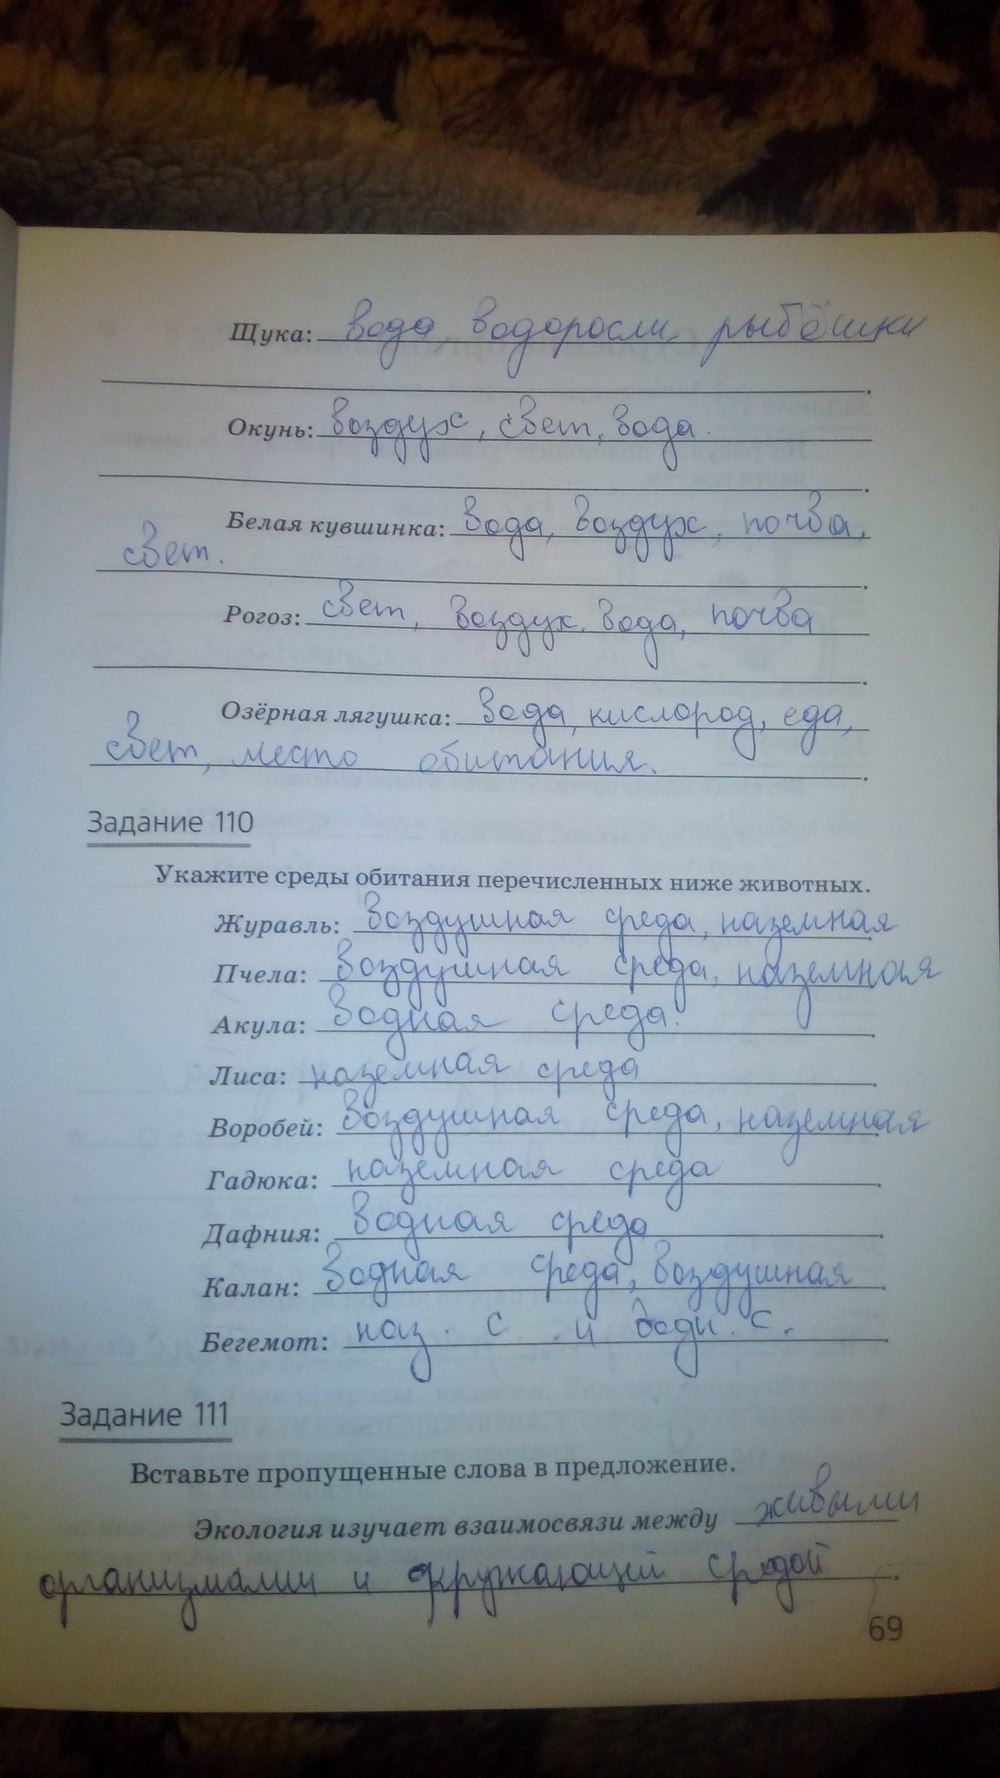 Щука: вода, водоросли, рыбёшки
.
Окунь: воздух, свет, вода.
.
Белая кувшинка: вода, воздух, почва,
свет.
Рогоз: свет, воздух, вода, почва
.
Озёрная лягушка: вода, кислород, еда,
свет, место обитания.
Задание 110
Укажите среды обитания перечисленных ниже животных.
Журавль: воздушная среда, наземная
Пчела: воздушная среда, наземная
Акула: водная среда.
Лиса: наземная среда
Воробей: воздушная среда, наземная
Гадюка: наземная среда
Дафния: водная среда
Калан: водная среда, воздушная
Бегемот: наз. с. и водн. с.
Задание 111
Вставьте пропущенные слова в предложение.
Экология изучает взаимосвязи между живыми
организмами и окружающей средой
69